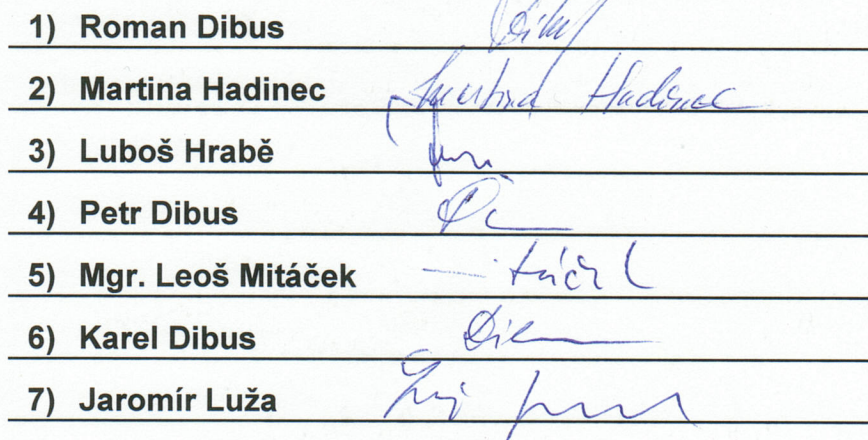 1) Roman Dibus
2) Martina Hadinec Martina Hadinec
3) Luboš Hrabě
4) Petr Dibus
5) Mgr. Leoš Mitáček
6) Karel Dibus
7) Jaromír Luža